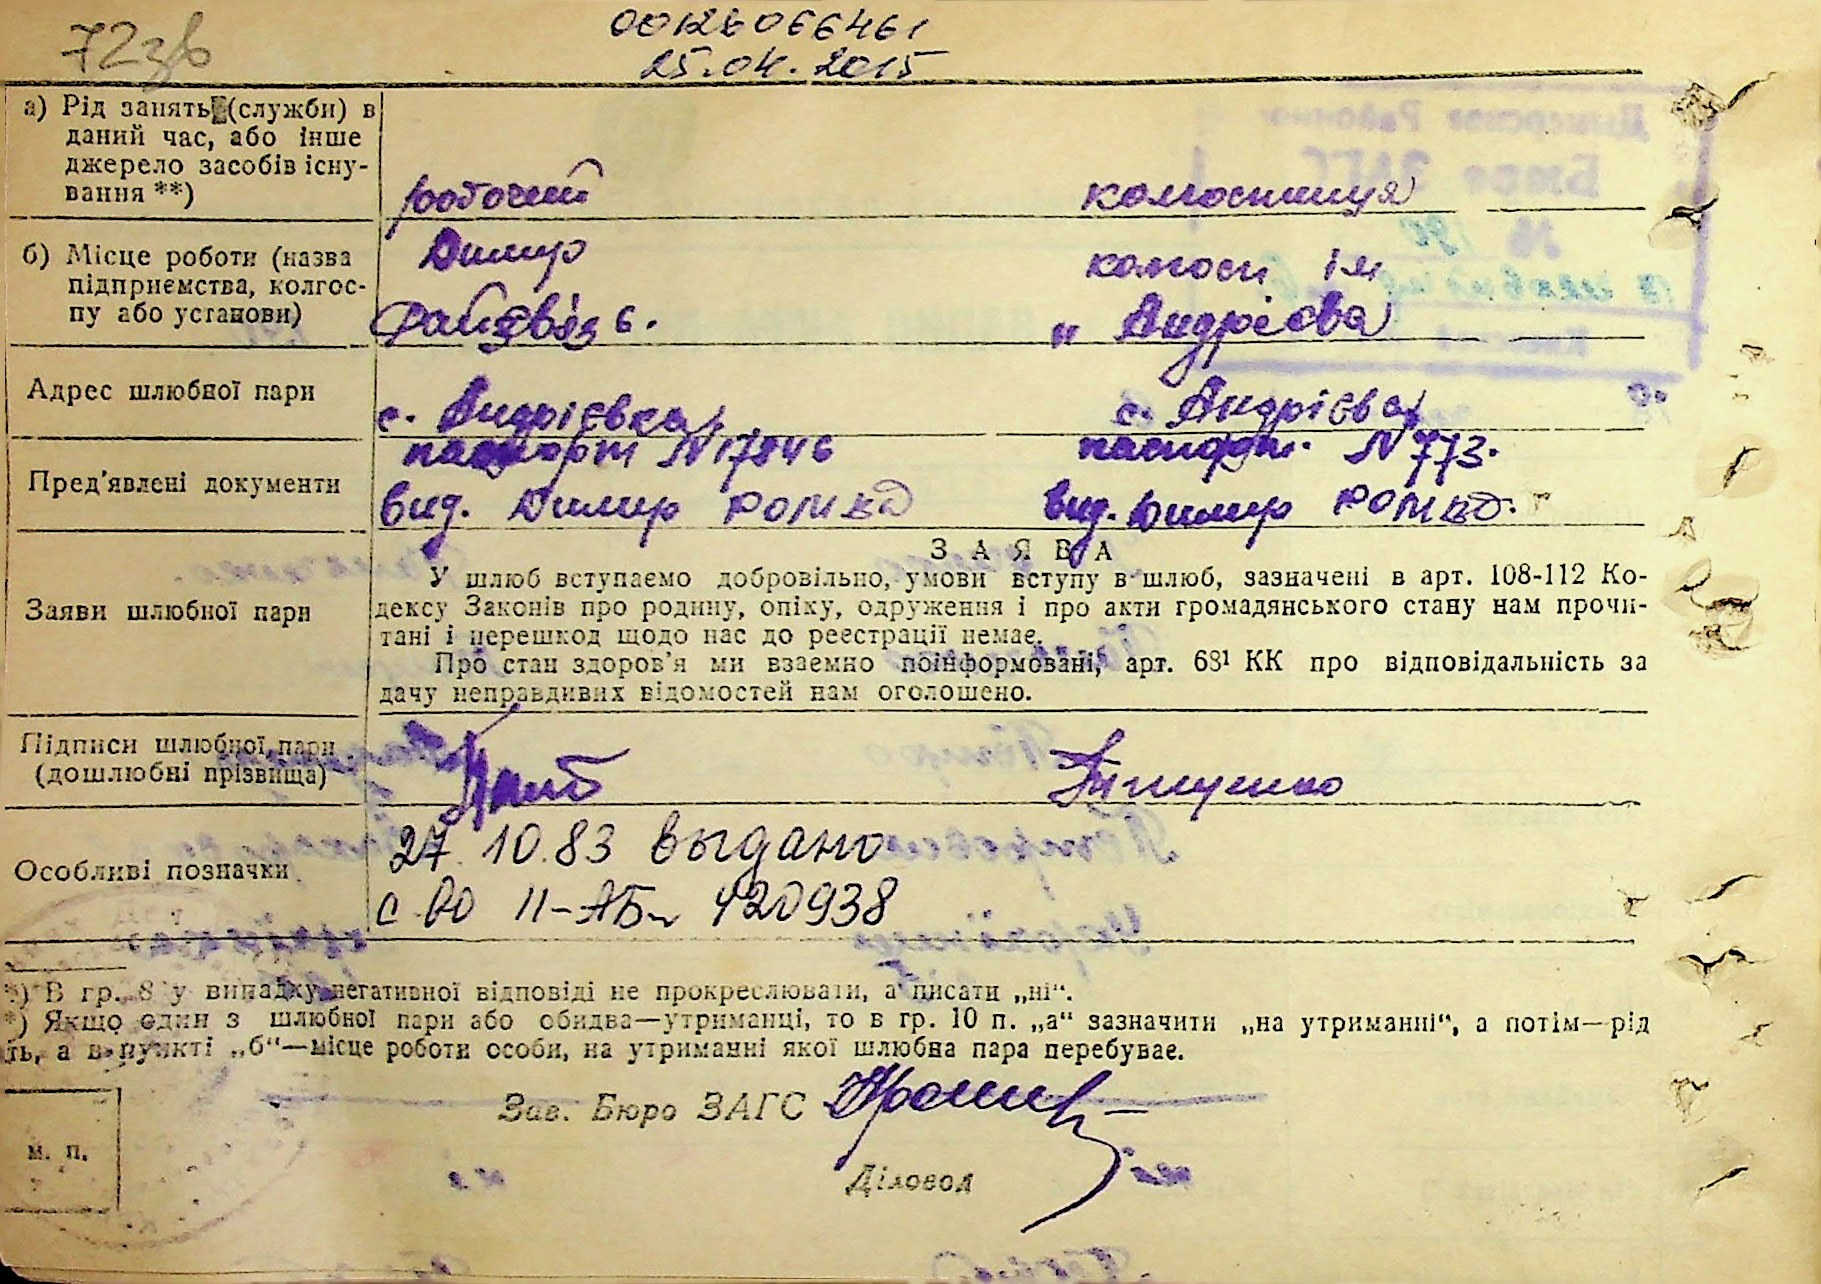 72зв
00128066461
25.04.2015
а) Рід занять (службй) в
даний час, або інше
джерело засобів існу-
вання **)
робочий
колгоспниця
б) Місце роботи (назва
підприємства, колгос-
пу або установи)
Димир
Райзвязь.
колгосп ім
„ Андрієва
Адрес шлюбної пари
с. Андрієвка,
с. Андрієва,
Пред'явлені документи
паспорт N 17846
вид. Димир РОМВД
паспорт. N 773.
вид. Димир РОМВД.
ЗАЯВА
Заяви шлюбної пари
У шлюб вступаємо добровільно, умови вступу в шлюб, зазначені в арт. 108-112 Ко-
дексу Законів про родину, опіку, одруження і про акти громадянського стану нам прочи-
тані і перешкод щодо нас до реєстрації немає.
Про стан здоров'я ми взаємно поінформовані, арт. 68¹ КК про відповідальність за
дачу неправдивих відомостей нам оголошено.
Підписи шлюбної пари
(дошлюбні прізвища)
Тищенко
Особливі позначки
27.10.83 выдано
с во II-АБ 420938
*) В гр. 8 у випадку негативної відповіді не прокреслювати, а писати „ні“.
*) Якщо один з шлюбної пари або обидва—утриманці, то в гр. 10 п. „а“ зазначити „на утриманні“, а потім—рід
ть, а в пункті „б“—місце роботи особи, на утриманні якої шлюбна пара перебуває.
Зав. Бюро ЗАГС
Діловод
м. п.